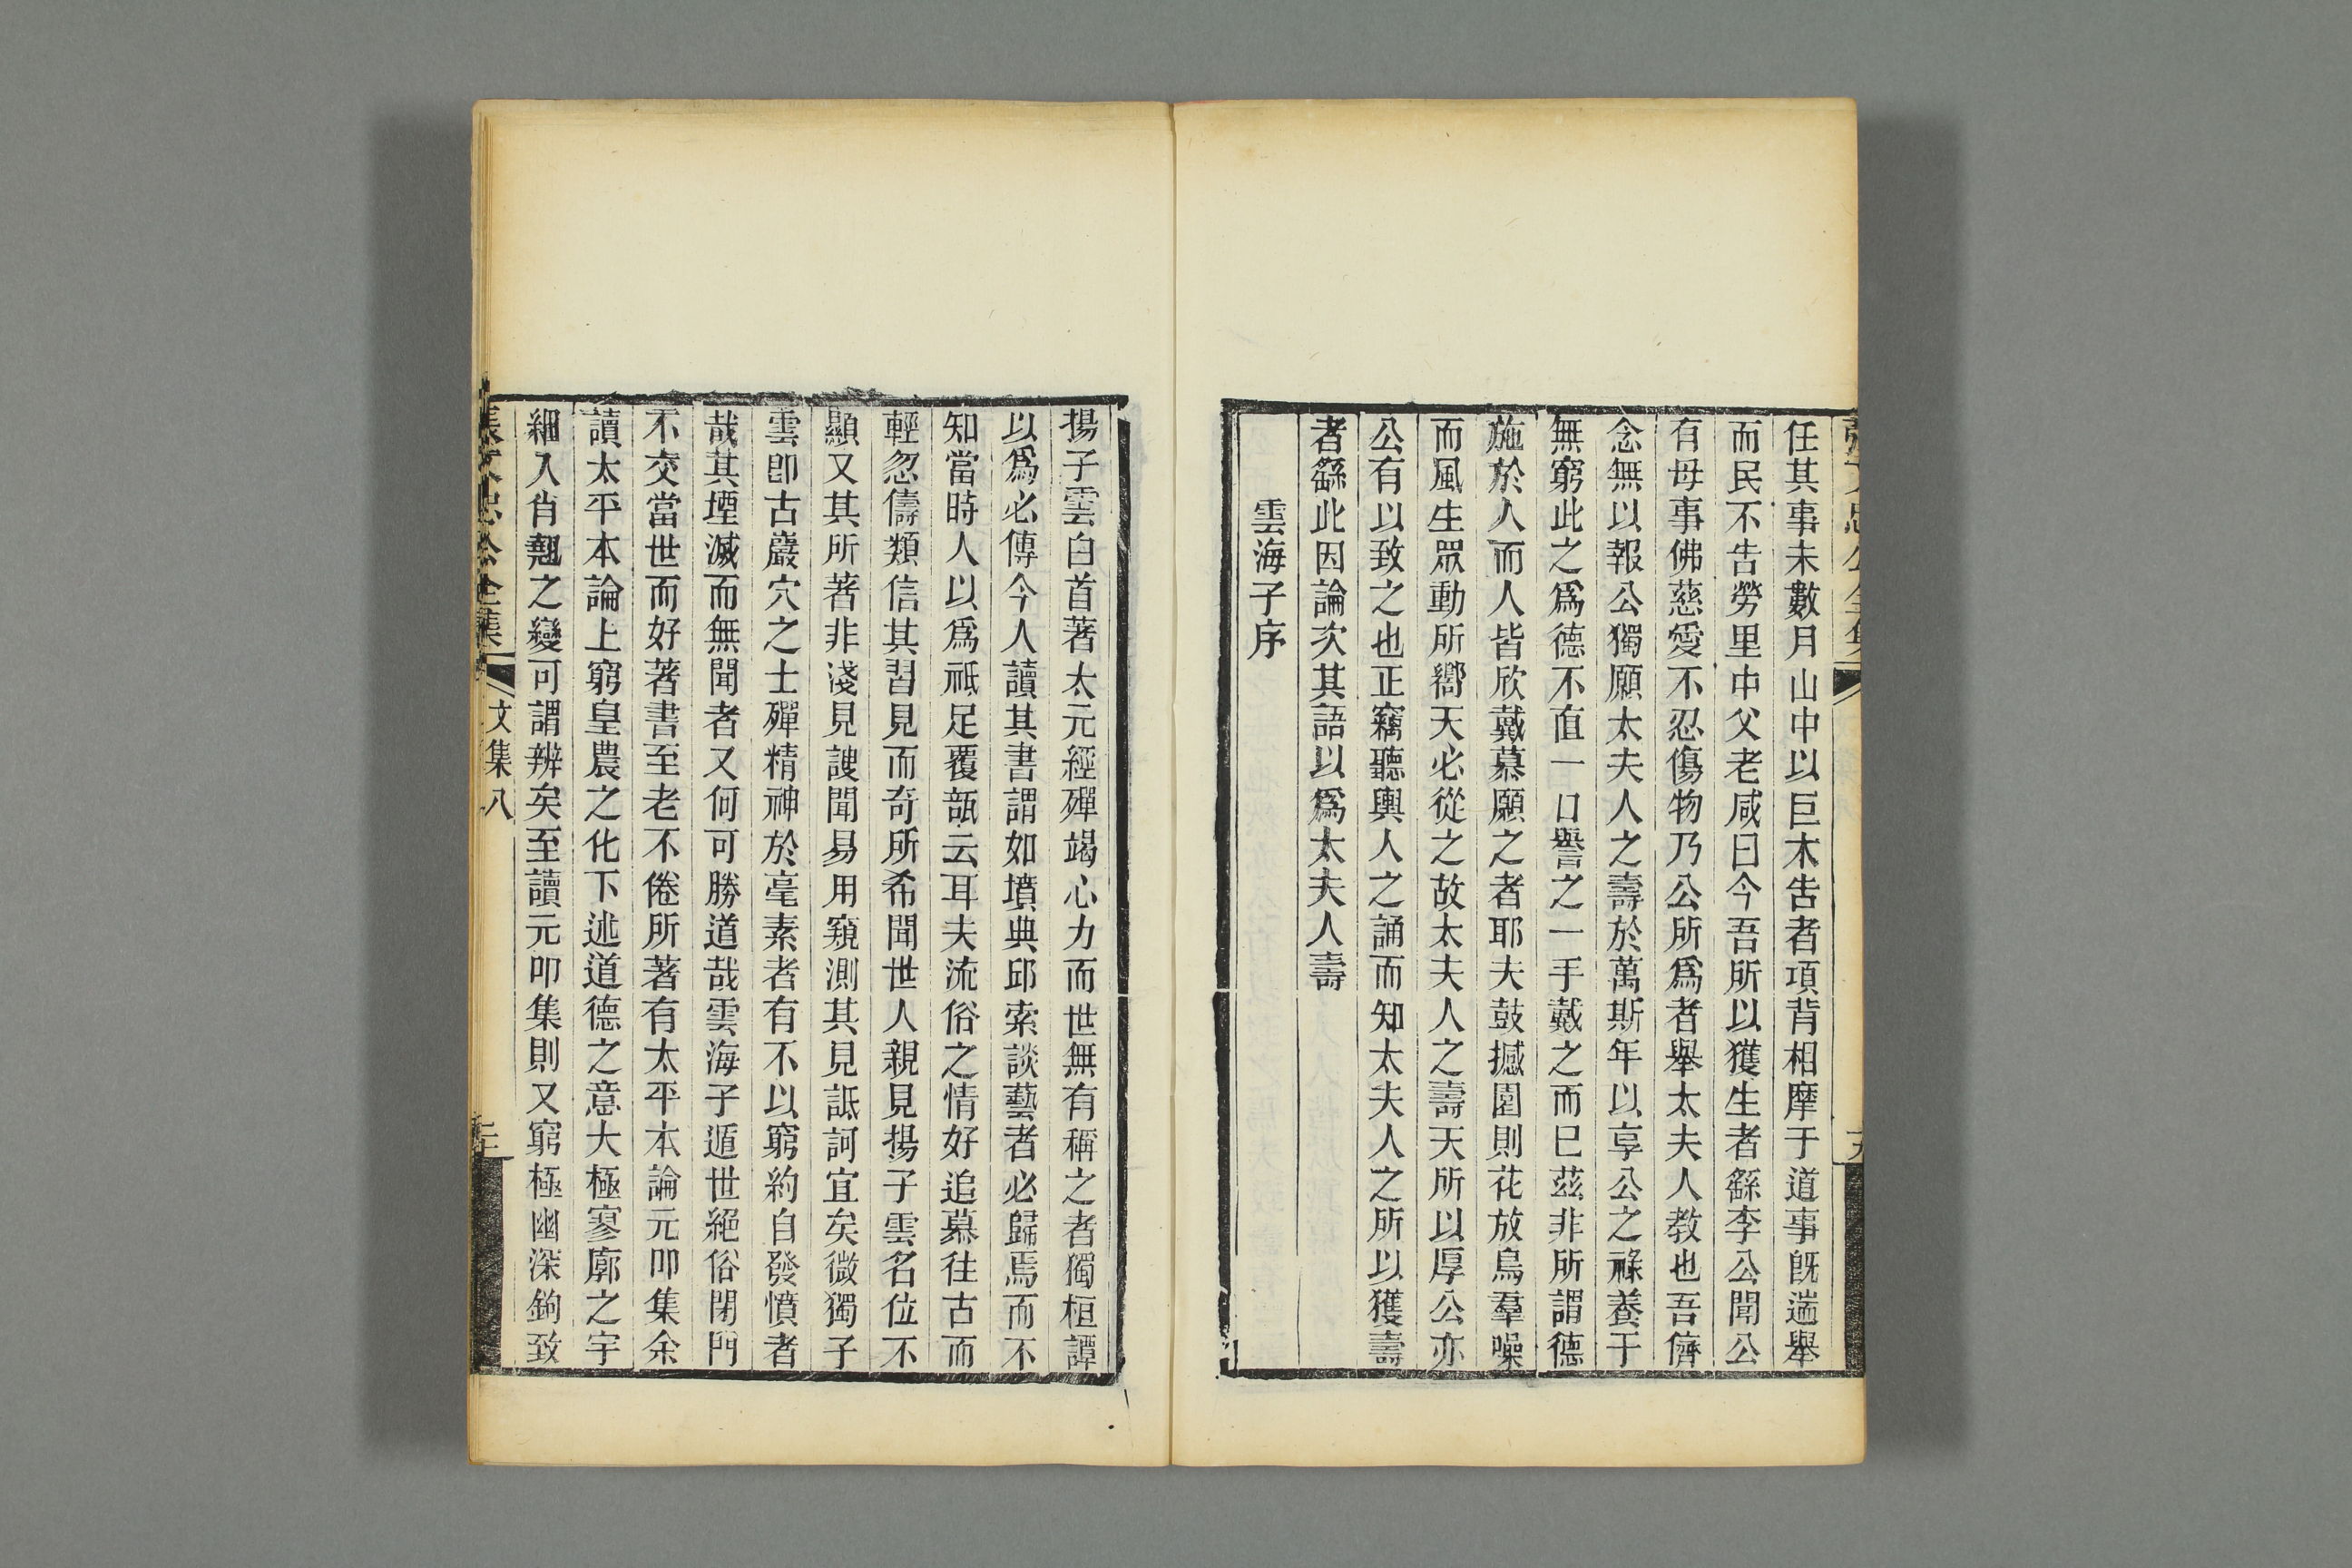 任其事未數月山中以巨木告者項背相摩于道事旣遄舉
而民不告勞里中父老咸曰今吾所以獲生者繇李公聞公
有母事佛慈愛不忍傷物乃公所爲者舉太夫人教也吾儕
念無以報公獨願太夫人之壽於萬斯年以享公之祿養于
無窮此之爲德不直一口譽之一手戴之而已茲非所謂德
施於人而人皆欣戴慕願之者耶夫鼓撼圍則花放鳥羣噪
而風生眾動所嚮天必從之故太夫人之壽天所以厚公亦
公有以致之也正竊聽輿人之誦而知太夫人之所以獲壽
者繇此因論次其語以爲太夫人壽
雲海子序
揚子雲白首著太元經殫竭心力而世無有稱之者獨桓譚
以爲必傳今人讀其書謂如墳典邱索談藝者必歸焉而不
知當時人以爲祗足覆瓿云耳夫流俗之情好追慕往古而
輕忽儔類信其習見而奇所希聞世人親見揚子雲名位不
顯又其所著非淺見謏聞易用窺測其見詆訶宜矣微獨子
雲卽古巖穴之士殫精神於毫素者有不以窮約自發憤者
哉其堙滅而無聞者又何可勝道哉雲海子遁世絕俗閉門
不交當世而好著書至老不倦所著有太平本論元叩集余
讀太平本論上窮皇農之化下述道德之意大極寥廓之宇
細入肖翹之變可謂辨矣至讀元叩集則又窮極幽深鉤致
張文忠公全集 文集八